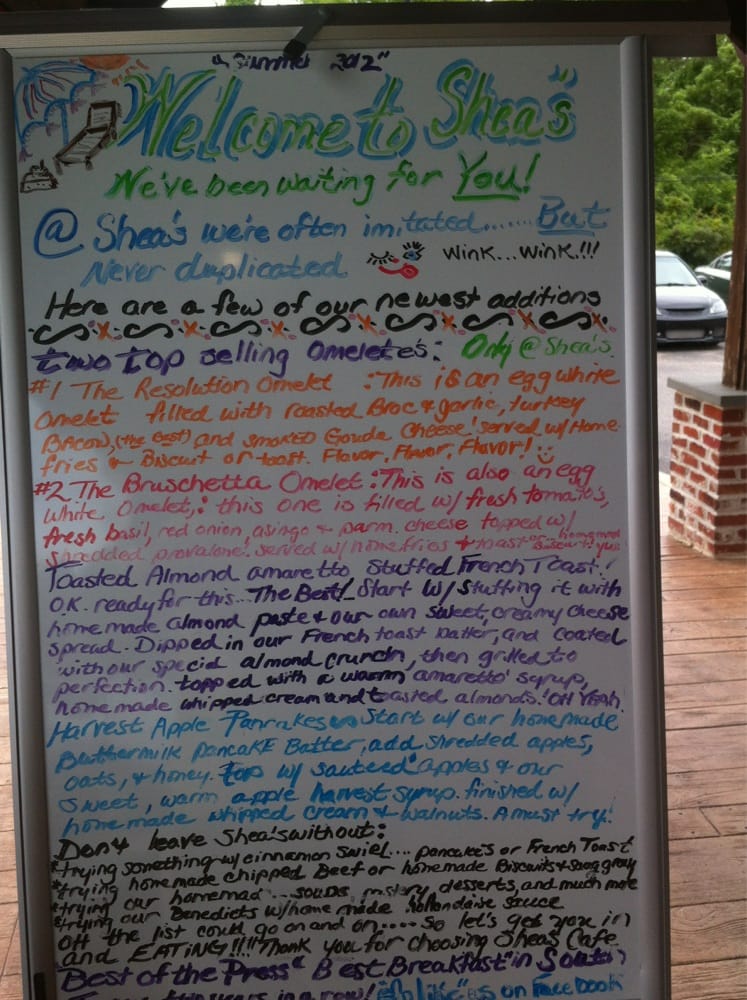 "Summer 2012"
Welcome to Shea's
We've been waiting for You!
@ Shea's we're often imitated....... But
Never duplicated. Wink...Wink!!!
Here are a few of our newest additions
two top selling Omelete's: Only @ Shea's.
#1 The Resolution Omelet :This is an egg white
Omelet filled with roasted Broc & garlic, turkey
Bacon, (the best) and smoked Gouda Cheese! served w/ Home
fries & Biscuit or toast. Flavor, Flavor, Flavor!
#2 The Bruschetta Omelet :This is also an egg
white Omelet,: this one is filled w/ fresh tomato's,
fresh basil, red onion, asiago & parm. cheese topped w/
shredded provalone! served w/ homefries & toast homemade
Biscuit!
Toasted Almond amaretto Stuffed French Toast!
O.K. ready for this... The Best! Start w/ stuffing it with
homemade almond paste & our own sweet, creamy cheese
spread. Dipped in our French toast batter, and coated
with our special almond crunch, then grilled to
perfection. topped with a warm amaretto syrup,
homemade whipped cream and toasted almonds. OH YEAH
Harvest Apple Pancakes Start w/ our homemade
Buttermilk pancake Batter, add shredded apples,
oats, & honey. Top w/ sauteed apples & our
sweet, warm apple harvest syrup. finished w/
homemade whipped cream & walnuts. A must try!
Don't leave Shea's without:
*trying something w/ cinnamon swirl.... pancake's or French Toast
*trying homemade chipped Beef or homemade Biscuits & sausg gravy
*trying our homemad... soups, pastery, desserts, and much more
*trying our Benedicts w/ home made hollandaise sauce
Off the list could go on and on.....so let's get you in
and EATING!!!! Thank you for choosing Shea's Cafe
Best of the Press "Best Breakfast" in South
two years in a row! "like" us on Facebook